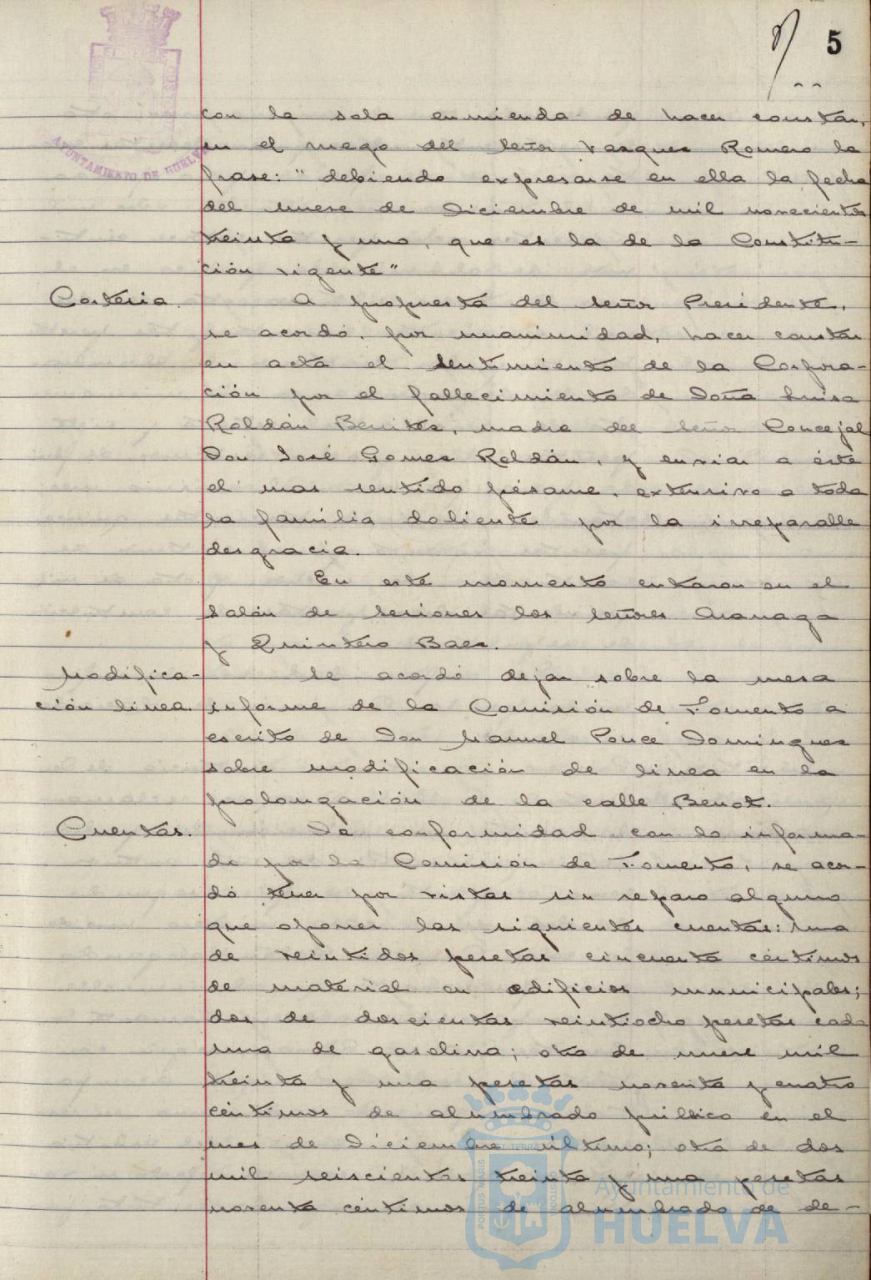 5
AYUNTAMIENTO DE HUELVA
con la sola enmienda de hacer constar,
en el ruego del señor Vazquez Romero la
frase: "debiendo expresarse en ella la fecha
del nueve de Diciembre de mil novecientos
treinta y uno, que es la de la Constitu-
ción vigente"
Cortesia.
A propuesta del señor Presidente,
se acordó, por unanimidad, hacer constar
en acta el sentimiento de la Corpora-
ción por el fallecimiento de Doña Luisa
Roldán Benitez, madre del señor Concejal
Don José Gomez Roldán, y enviar a éste
el mas sentido pésame, extensivo a toda
la familia doliente por la irreparable
desgracia.
En este momento entraron en el
Salón de Sesiones los señores
y Quintero Baez.
Modifica-
ción linea.
Se acordó dejar sobre la mesa
informe de la Comisión de Fomento a
escrito de Don Manuel Ponce Dominguez
sobre modificación de linea en la
prolongación de la calle Benot.
Cuentas.
De conformidad con lo informa-
do por la Comisión de Fomento, se acor-
dó tener por vistas sin reparo alguno
que oponer las siguientes cuentas: una
de veintidos pesetas cincuenta céntimos
de material en edificios municipales;
dos de doscientas veintiocho pesetas cada
una de gasolina; otra de nueve mil
treinta y una pesetas noventa y cuatro
céntimos de alumbrado público en el
mes de Diciembre último; otra de dos
mil seiscientas treinta y una pesetas
noventa céntimos de alumbrado de de-
Ayuntamiento de
HUELVA